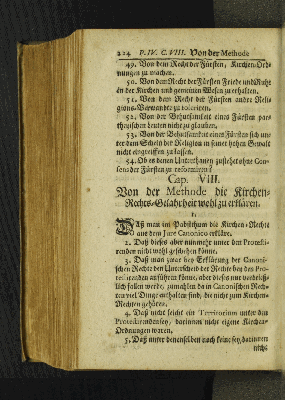 224 P. IV. C. VIII. Von der Methode
49. Von dem Recht der Fürsten, Kirchen-Ord-
nungen zu machen.
50. Von dem Recht der Fürsten Friede und Ruhe
in der Kirchen und gemeinen Wesen zu erhalten.
51. Von dem Recht der Fürsten andre Reli-
gions-Verwandte zu toleriren.
52. Von der Behutsamkeit eines Fürsten pae-
theyischen Leuten nicht zu glauben.
53. Von der Behutsamkeit eines Fürsten sich un-
ter dem Schein der Religion in seiner hohen Gewalt
nicht eingreiffen zu lassen.
54. Ob es denen Unterthanen zustehe ohne Con-
sens der Fürsten zu reformiren?
Cap. VIII.
Von der Methode die Kirchen-
Rechts-Gelahrheit wohl zu erklären.
1.
Daß man im Pabstthum die Kirchen-Rechte
aus dem Jure Canonico erkläre.
2. Daß dieses aber nunmehr unter den Protesti-
renden nicht wohl geschehen könne.
3. Daß man zwar bey Erklärung der Canoni-
schen Rechte den Unterscheid der Rechte bey den Pro-
testirenden anführen könne, aber dieses nur verdrieß-
lich fallen werde, zumahlen da in Canonischen Rech-
ten viel Dinge enthalten sind, die nicht zum Kirchen-
Rechten gehören.
4. Daß nicht leicht ein Territorium unter den
Protestirenden sey, darinnen nicht eigene Kirchen-
Ordnungen wären,
5. Daß unter denenselben auch keine sey, darinnen
nicht